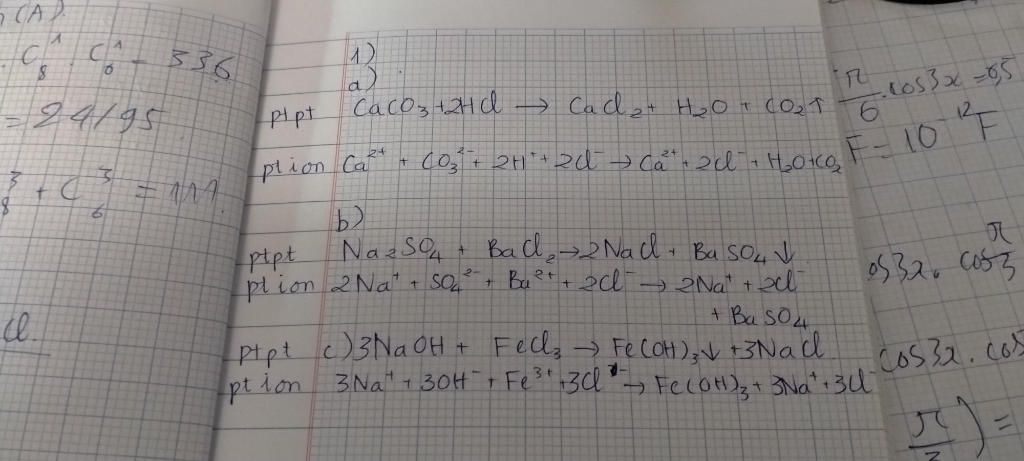 (A)
C¹₈ . C¹₆ = 336
= 24/95
³₈ + C³₆ = 111.
Cl
1)
a)
ptpt CaCO₃+2HCl → CaCl₂ + H₂O + CO₂↑
ption Ca²⁺ + CO₃²⁻ + 2H⁺ + 2Cl⁻ → Ca²⁺ + 2Cl⁻ + H₂O+CO₂
b)
ptpt Na₂SO₄ + BaCl₂→2NaCl + BaSO₄↓
ption 2Na⁺ + SO₄²⁻ + Ba²⁺ + 2Cl⁻ → 2Na⁺ + 2Cl⁻
+ BaSO₄
ptpt c.)3NaOH + FeCl₃ → Fe(OH)₃↓ +3NaCl
ption 3Na⁺ + 3OH⁻ + Fe³⁺ +3Cl⁻ → Fe(OH)₃ + 3Na⁺ + 3Cl⁻
π/6 . cos3x = 0,5
F = 10⁻¹² F
os3x . cos π/3
cos3x . cos
π/3 ) =